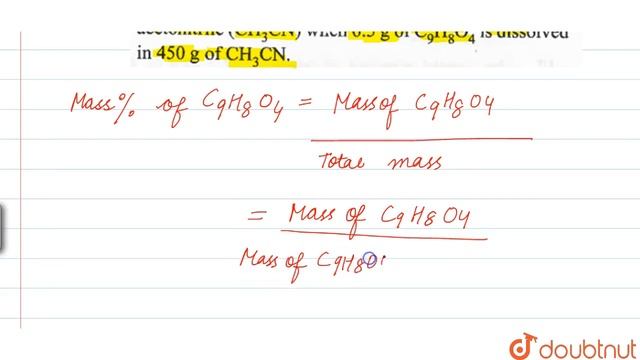 acetonitrile (CH₃CN) when 6.5 g of C₉H₈O₄ is dissolved
in 450 g of CH₃CN.
Mass% of C9H8O4 = Mass of C9H8O4
Total mass
= Mass of C9H8O4
Mass of C9H8O
doubtnut